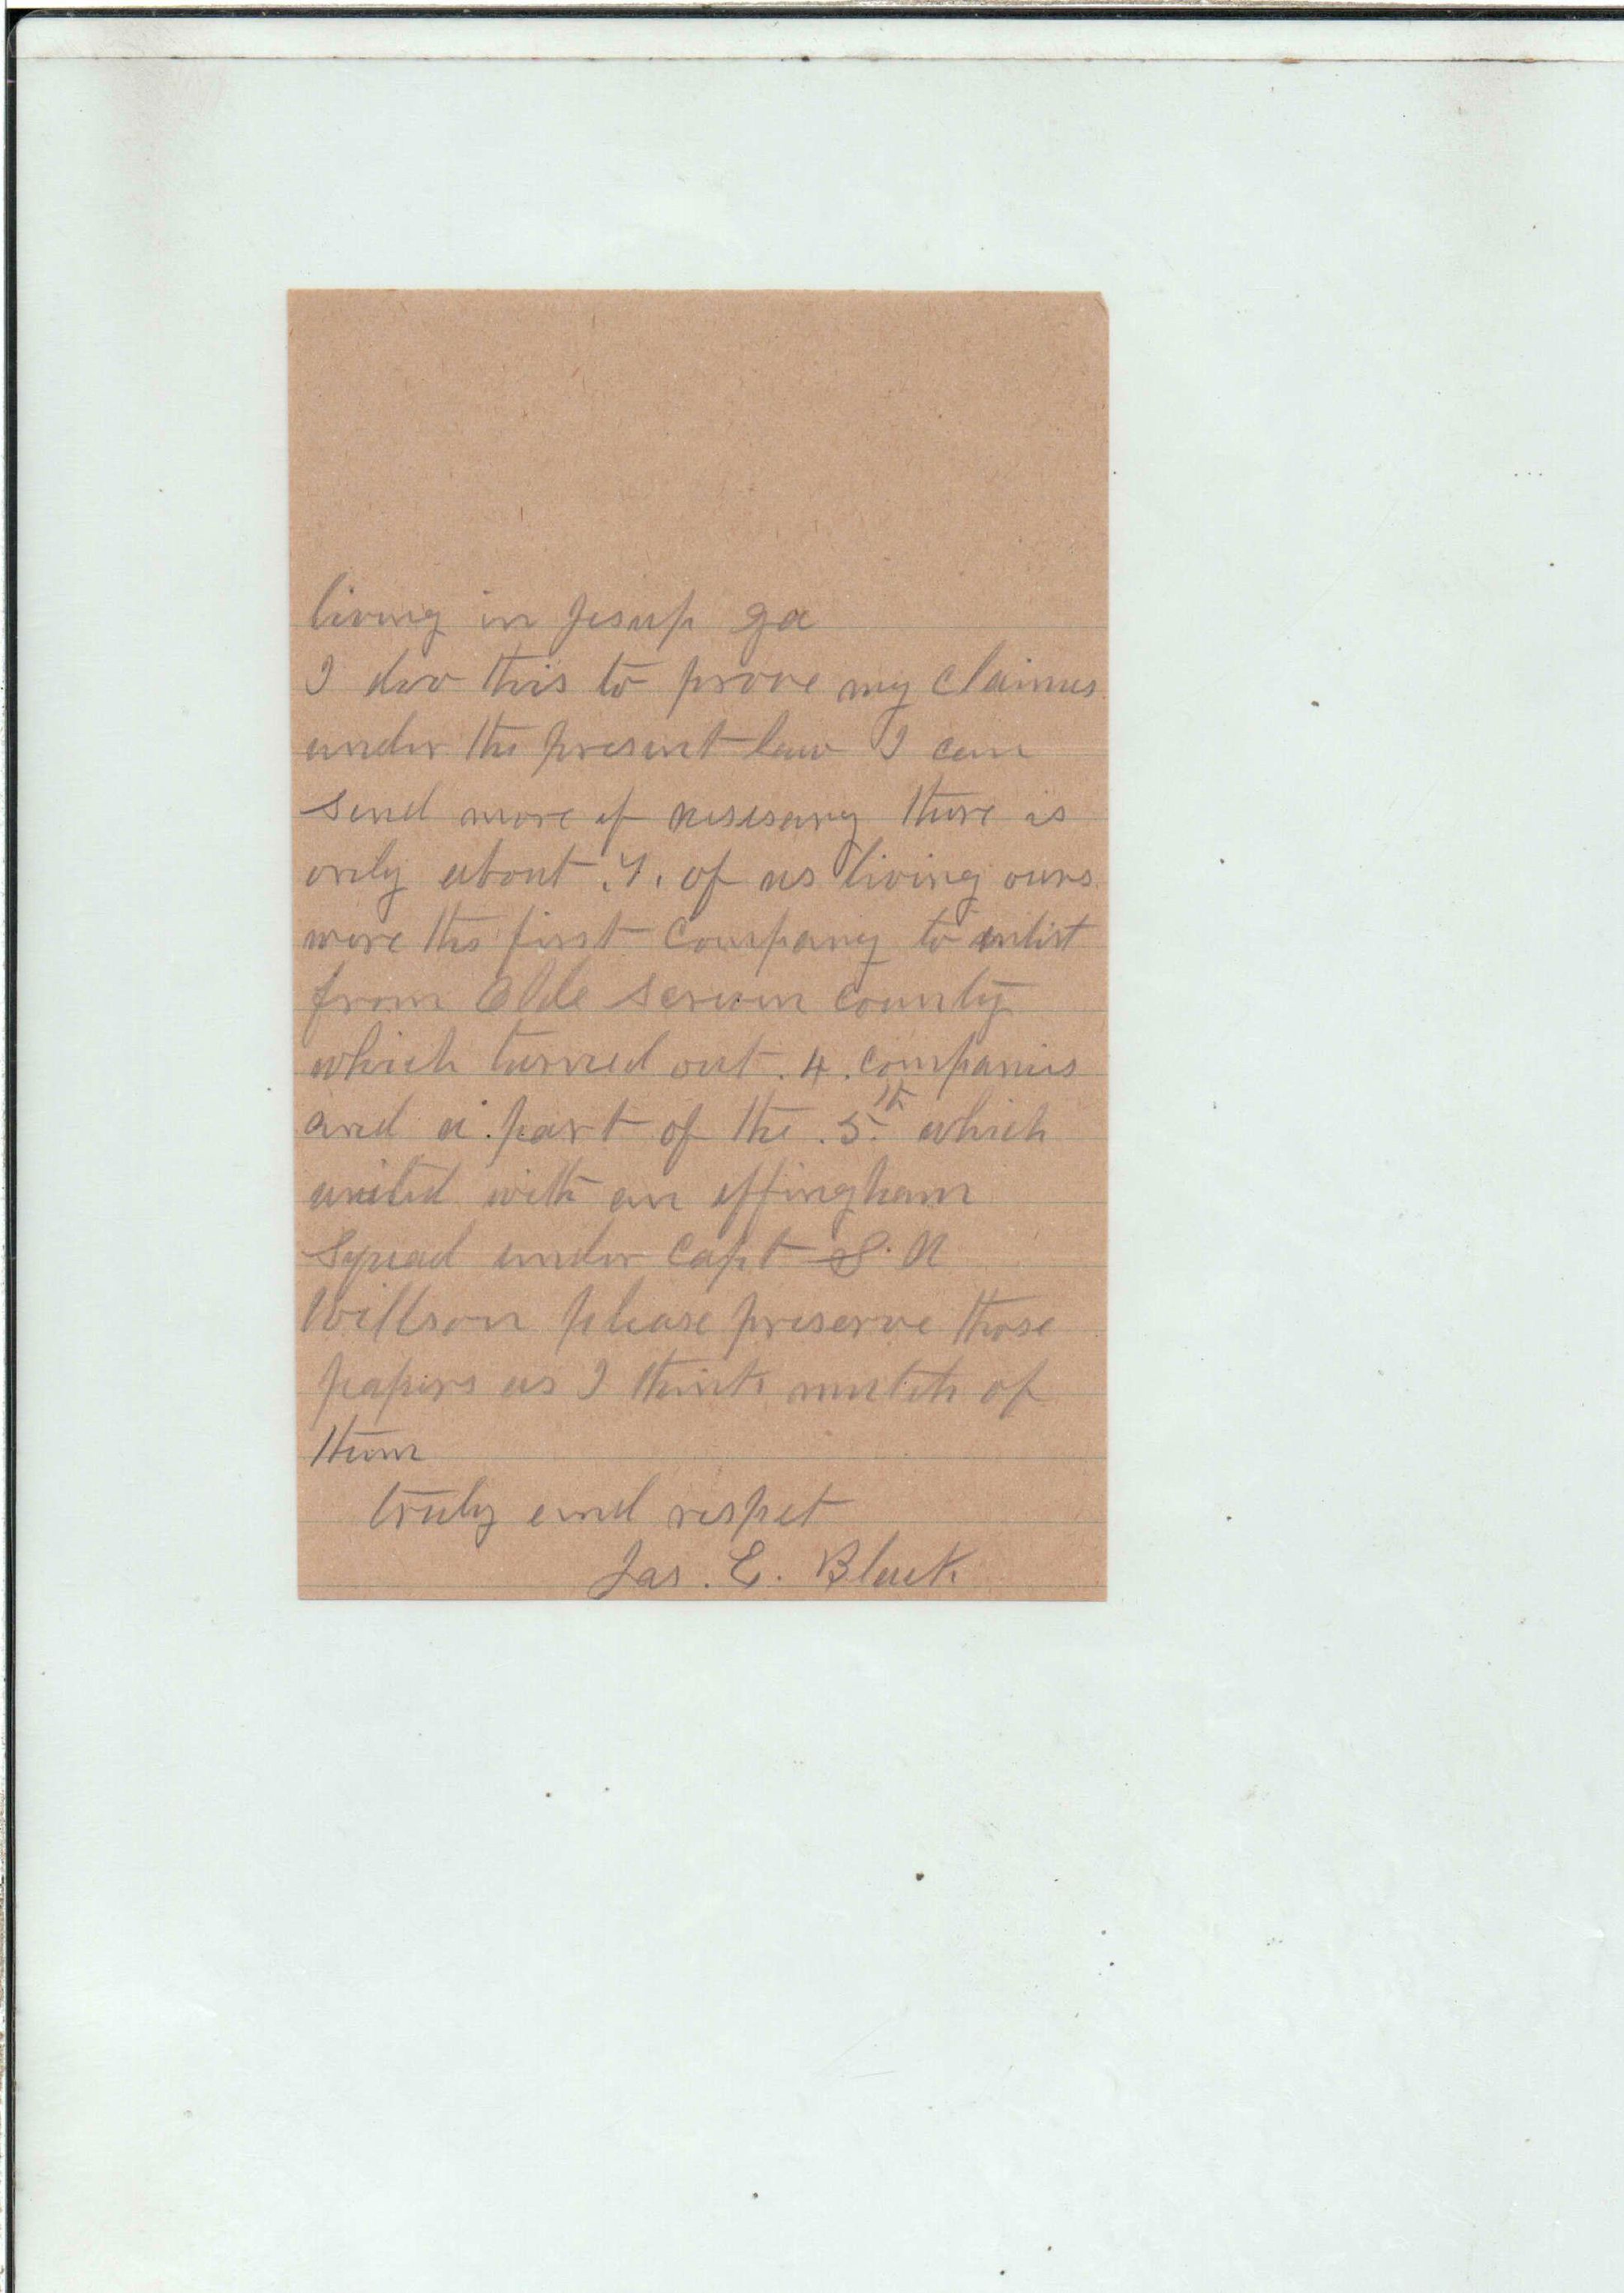 living in Jesup ga
I doo this to prove my claimes
under the present law I can
send more if nesisary there is
only about .7. of us living ours
wore the first Company to enlist
from Olde scriven county
which turned out . 4 . companies
and a part of the . 5th which
united with an effingham
Squad under Capt S. N
Willson please preserve those
papers as I think mutch of
them
truly and respet
Jas. E. Black